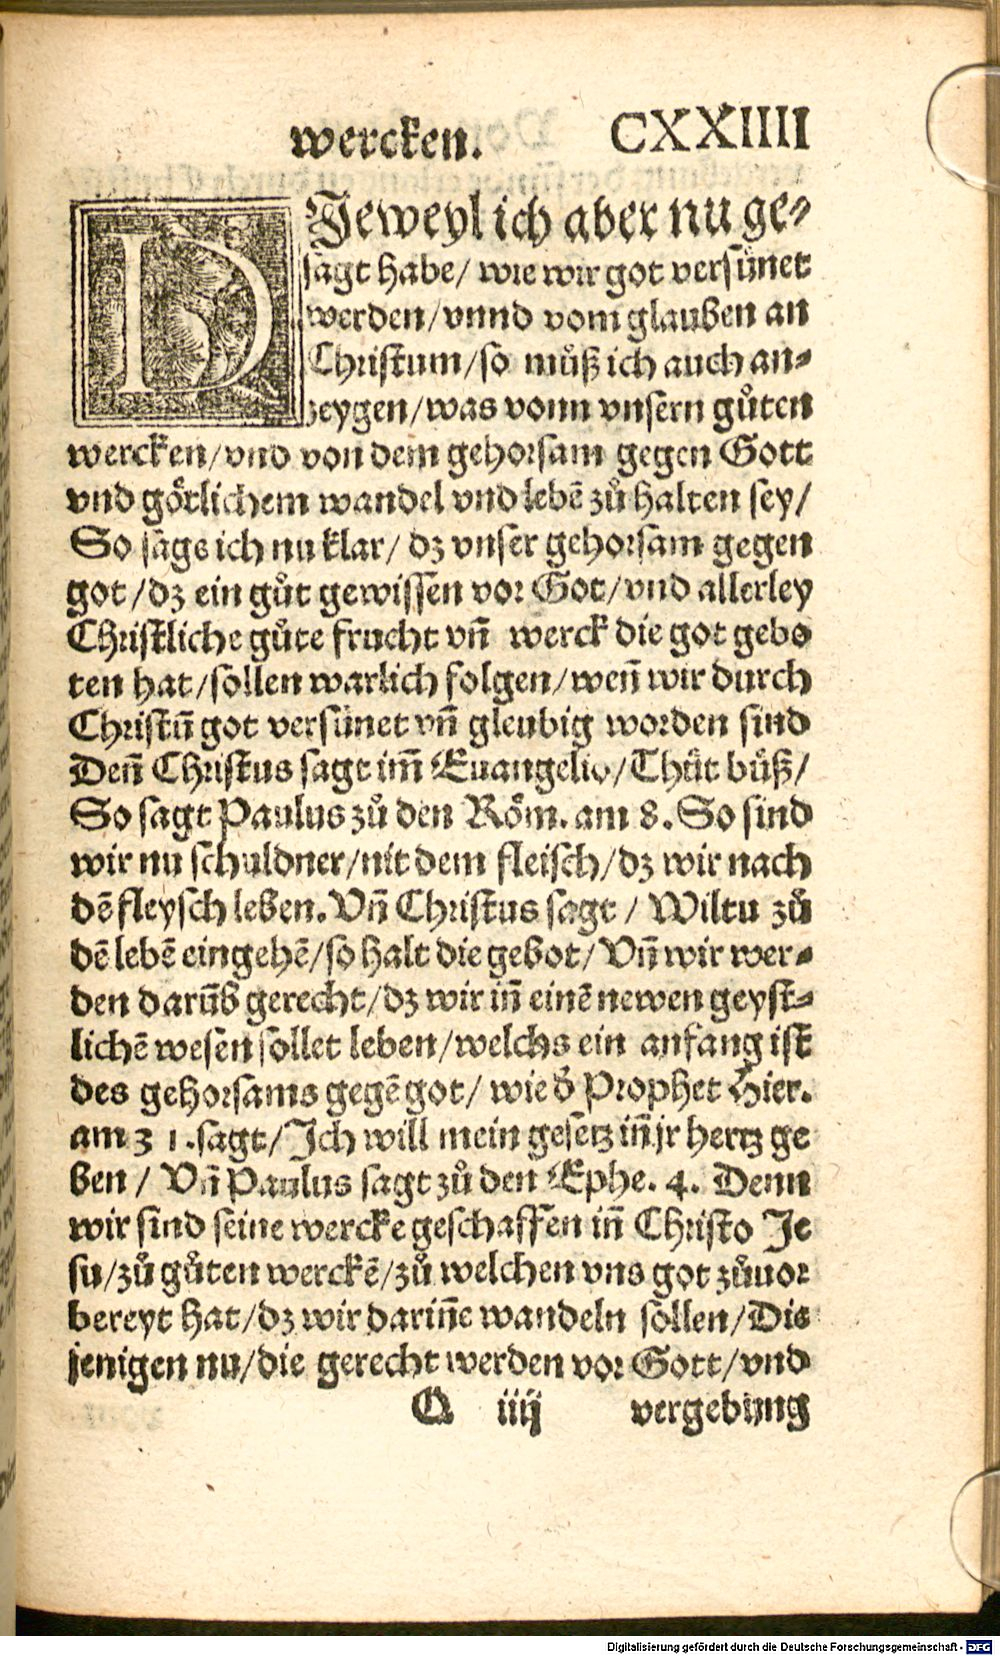 wercken. CXXIIII
DJeweyl ich aber nu ge-
sagt habe/ wie wir got versünet
werden/vnnd vom glauben an
Christum/so můß ich auch an-
zeygen/was vonn vnsern gůten
wercken/vnd von dem gehorsam gegen Gott
vnd götlichem wandel vnd lebē zů halten sey/
So sage ich nu klar/ dz vnser gehorsam gegen
got/dz ein gůt gewissen vor Got/vnd allerley
Christliche gůte frucht vñ werck die got gebo
ten hat/sollen warlich folgen/weñ wir durch
Christū got versünet vñ gleubig worden sind
Deñ Christus sagt im̄ Euangelio/Thůt bůß/
So sagt Paulus zů den Röm. am 8. So sind
wir nu schuldner/nit dem fleisch/dz wir nach
dē fleysch leben. Vñ Christus sagt / Wiltu zů
dē lebē eingehē/so halt die gebot/Vñ wir wer-
den darūb gerecht/dz wir iñ einē newen geyst-
lichē wesen sollet leben/welchs ein anfang ist
des gehorsams gegē got/ wie d̄ Prophet Hier.
am 31. sagt/Jch will mein gesetz iñ jr hertz ge
ben/ Vñ Paulus sagt zů den Ephe. 4. Denn
wir sind seine wercke geschaffen iñ Christo Je
su/zů gůten werckē/zů welchen vns got zůuor
bereyt hat/dz wir dariñe wandeln sollen/Die
jenigen nu/die gerecht werden vor Gott/vnd
Q iiij vergebung
Digitalisierung gefördert durch die Deutsche Forschungsgemeinschaft - DFG